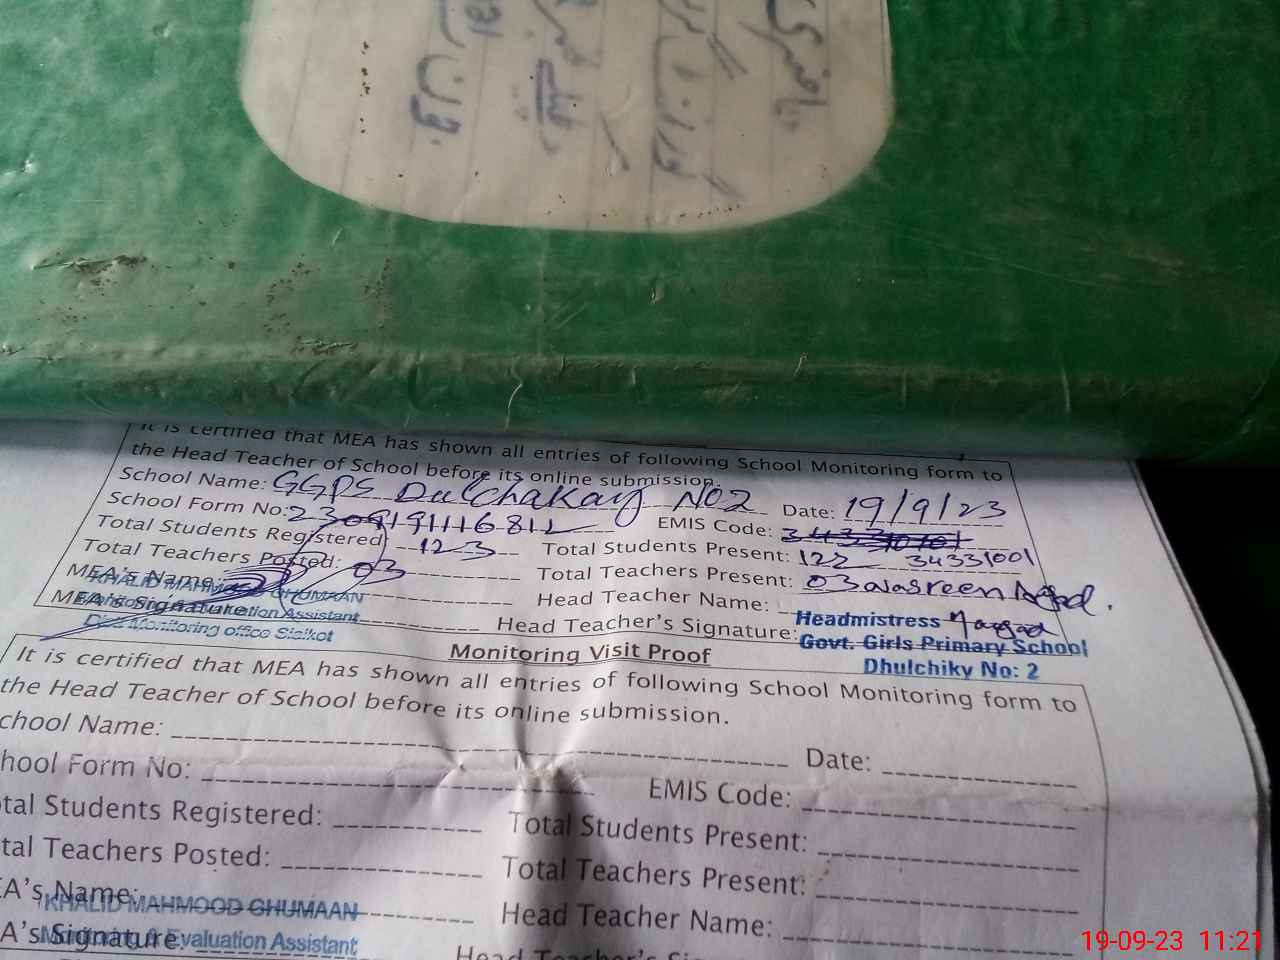 It is certified that MEA has shown all entries of following School Monitoring form to
the Head Teacher of School before its online submission.
School Name: GGPS Dulchakay NO2 Date: 19/9/23
School Form No: EMIS Code: 34331001
Total Students Registered: 123 Total Students Present: 122
Total Teachers Posted: 03 Total Teachers Present: 03
MEA's Name: KHALID MAHMOOD GHUMAAN Head Teacher Name: Nasreen
MEA's Signature: Monitoring & Evaluation Assistant Head Teacher's Signature: Headmistress
Distt Monitoring office Sialkot Govt. Girls Primary School
Dhulchiky No: 2
Monitoring Visit Proof
It is certified that MEA has shown all entries of following School Monitoring form to
the Head Teacher of School before its online submission.
chool Name: Date:
hool Form No: EMIS Code:
tal Students Registered: Total Students Present:
tal Teachers Posted: Total Teachers Present:
EA's Name: KHALID MAHMOOD GHUMAAN Head Teacher Name:
A's Signature: Monitoring & Evaluation Assistant
19-09-23 11:21